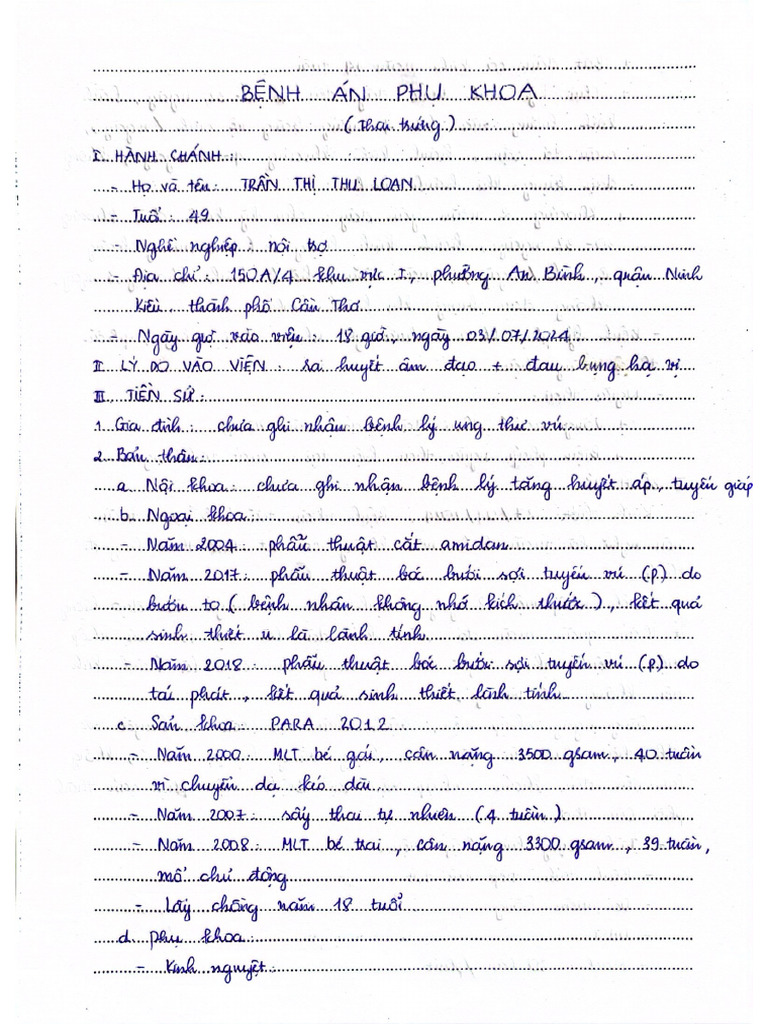 BỆNH ÁN PHỤ KHOA
( Thai trứng )
I. HÀNH CHÁNH :
- Họ và tên : TRẦN THỊ THU LOAN
- Tuổi : 49
- Nghề nghiệp : nội trợ
- Địa chỉ : 150A/4 khu vực I, phường An Bình, quận Ninh
Kiều, thành phố Cần Thơ
- Ngày giờ vào viện : 18 giờ, ngày 03/07/2024
II. LÝ DO VÀO VIỆN : ra huyết âm đạo + đau bụng hạ vị
III. TIỀN SỬ :
1. Gia đình : chưa ghi nhận bệnh lý ung thư vú
2. Bản thân :
a. Nội khoa : chưa ghi nhận bệnh lý tăng huyết áp, tuyến giáp
b. Ngoại khoa
- Năm 2004 : phẫu thuật cắt amidan
- Năm 2017 : phẫu thuật bóc bướu sợi tuyến vú (P) do
bướu to ( bệnh nhân không nhớ kích thước ), kết quả
sinh thiết u là lành tính
- Năm 2018 : phẫu thuật bóc bướu sợi tuyến vú (P) do
tái phát, kết quả sinh thiết lành tính
c. Sản khoa : PARA 2012
- Năm 2000 : MLT bé gái, cân nặng 3500 gram, 40 tuần
vì chuyển dạ kéo dài
- Năm 2007 : sẩy thai tự nhiên ( 4 tuần )
- Năm 2008 : MLT bé trai, cân nặng 3300 gram, 39 tuần,
mổ chủ động
- Lấy chồng năm 18 tuổi
d. Phụ khoa :
- Kinh nguyệt :